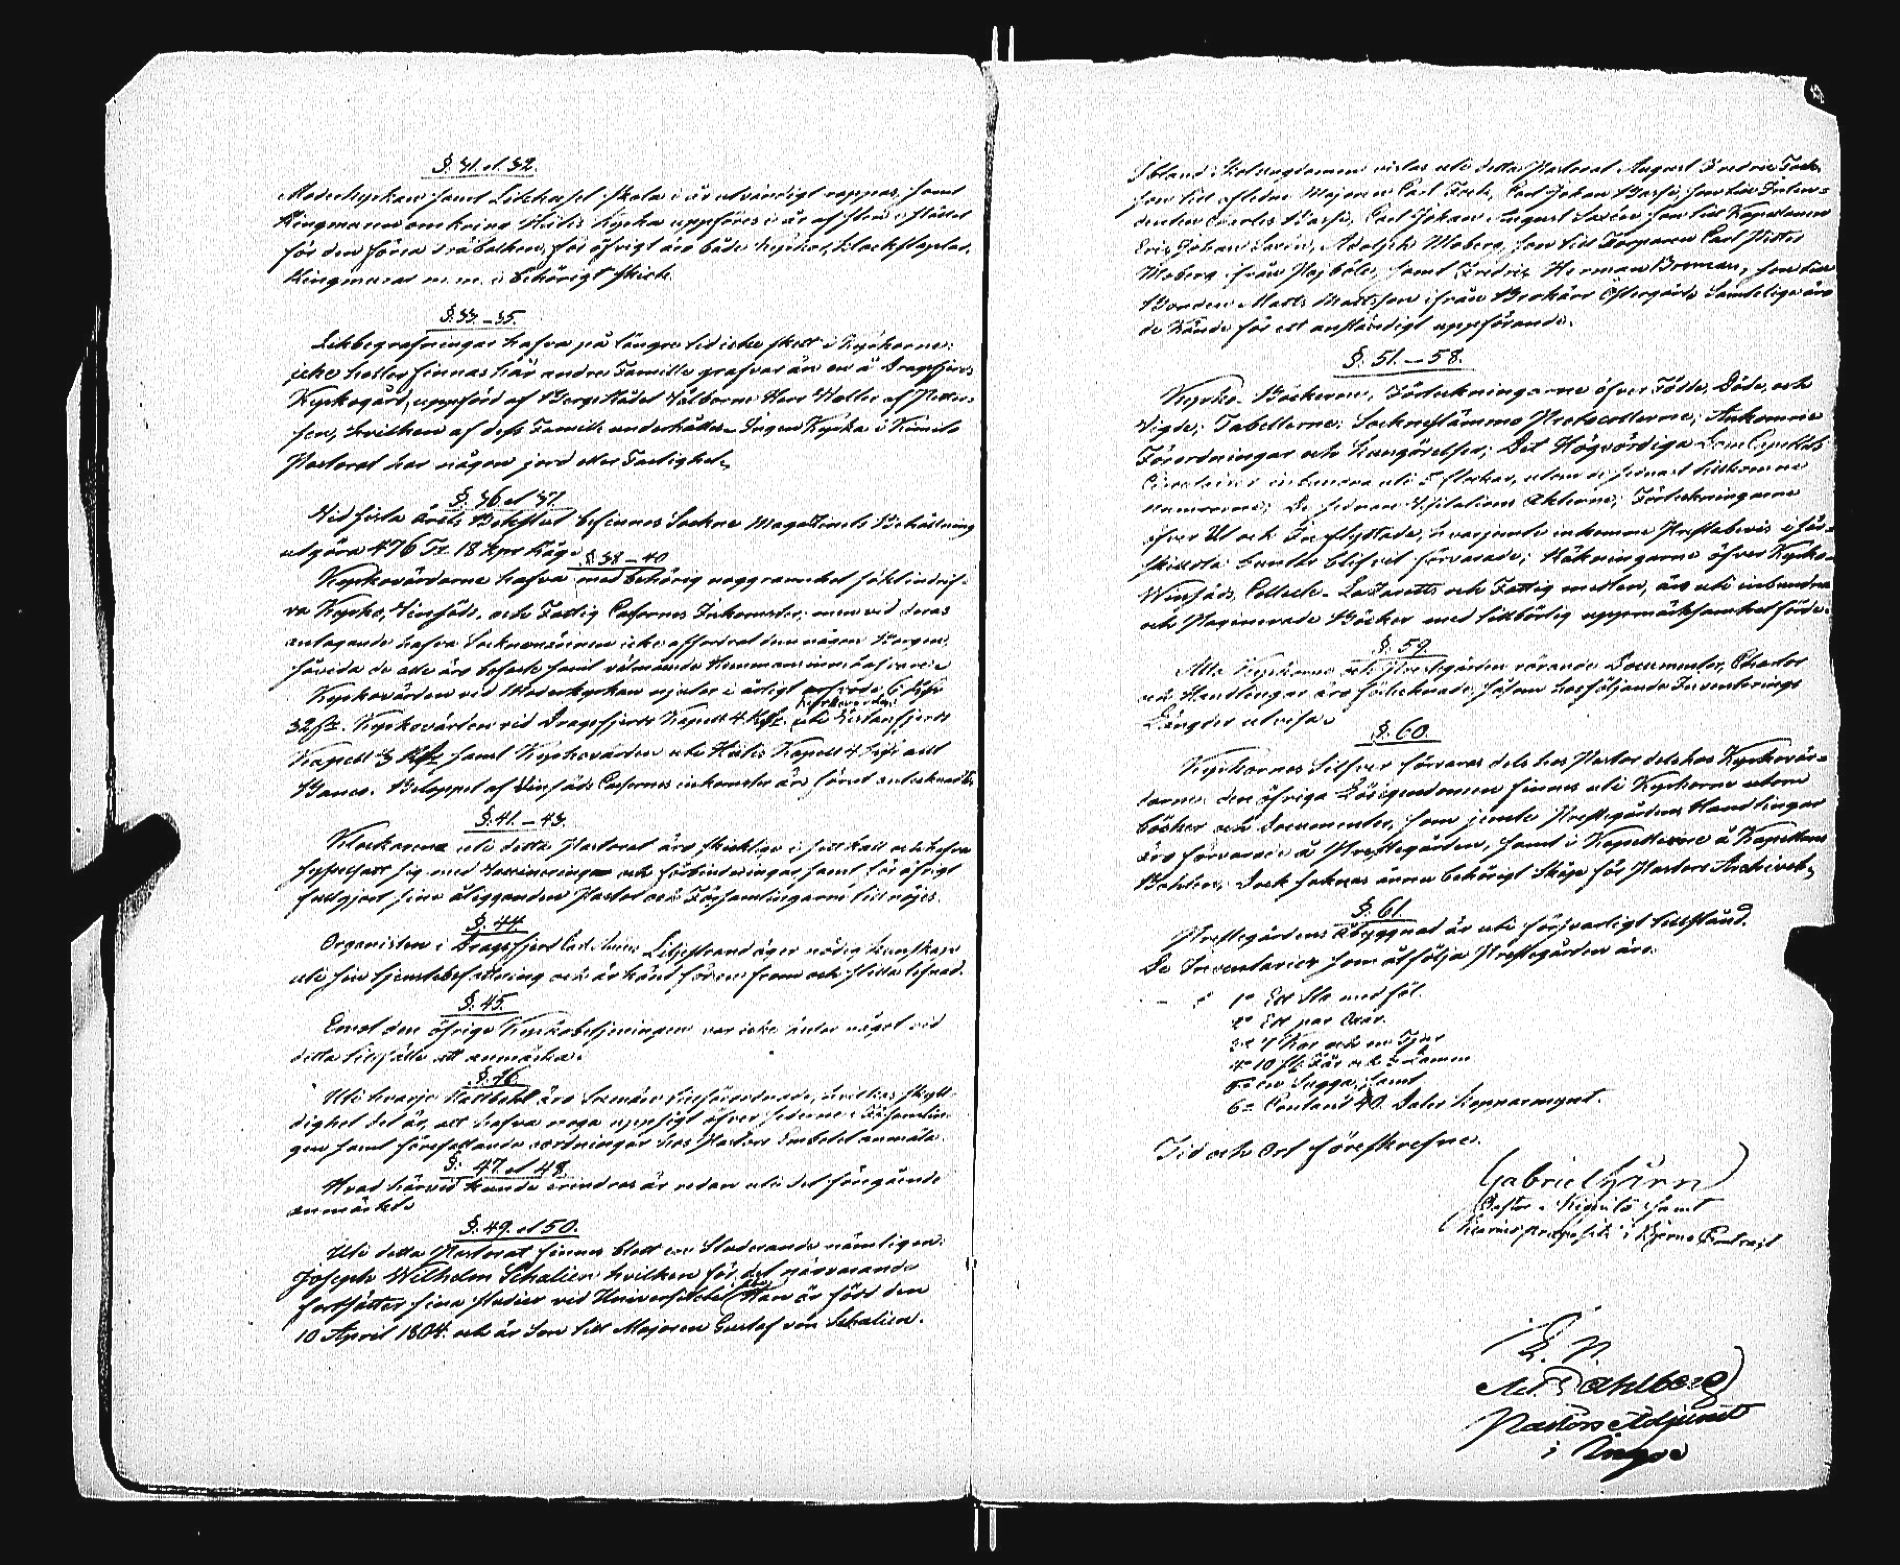 §. 31 et 32.
Moderkyrkan samt Lilchapel skola i år utvändigt rappas, samt
Ringmuren omkring Hitis Kyrka uppföres i år af sten i stället
för den förra träbalken, för öfrigt äro både kyrkor, klockstaplar,
Ringmurar m. m. i behörigt skick.
§. 33. – 35.
Likbegrafningar hafva på längre tid icke skett i Kyrkorne;
icke heller finnas här andra Famille grafvar än en å Dragsfjerds
Kyrkogård, uppförd af Bergsrådet Välborne Herr Wolter af Petter-
sen, hvilken af dess Famille underhålles. Ingen Kyrka i Kimito
Pastorat har någon jord eller Fastighet.
§. 36 et 37.
Vid sista årets Bokslut befinnes Sockne Magasinets Behållning
utgöra 476 Tr. 18 kpr Råg.
§. 38 – 40
Kyrkovärdarne hafva med behörig noggranhet sökt indrif-
va Kyrko, Vinsäds, och Fattig Cassornes Inkomster; men vid deras
antagande hafva Socknemännen icke affordrat dem någon Borgen,
såvida de alla äro besutne samt välmående Hemmans innehafvare.
Kyrkovärden vid Moderkyrkan njuter i årligt arfvode 6 Rßr
32 ß. Kyrkovärden vid Dragsfjerds Kapell 4 Rßr. Kyrkovärden uti Westanfjerds
Kapell 3 Rßr samt Kyrkovärden uti Hitis Kapell 4 Rßr allt
Banco. Beloppet af Vinsäds Cassornes inkomster äro förut antecknade.
§. 41. – 43.
Klockarena uti detta Pastorat äro skicklige i sitt kall och hafva
sysselsatt sig med Vaccineringen och förbindningar samt för öfrigt
fullgjort sine åligganden Pastor och Församlingarne till nöjes.
§. 44.
Organisten i Dragsfjerd Carl Liljestrand äger nödig kunskap
uti sin tjenstebefattning och är känd för en from och stilla lefnad.
§. 45.
Emot den öfrige Kyrkobetjeningen var icke heller något vid
detta tillfälle att anmärka.
§. 46.
Uti hvarje Rottbohl äro Sexmän tillförordnade, hvilkas skyl-
dighet det är, att hafva noga uppsigt öfver sederne i Församlin-
gen samt förefallande oordningar hos Pastors Embetet anmäla.
§. 47. et 48.
Hvad härvid kunde erindras är redan uti det föregående
anmärkt.
§. 49. et 50.
Uti detta Pastorat finnes blott en Studerande nämligen:
Joseph Wilhelm Schalien hvilken för det närvarande
fortsätter sina studier vid Universitetet Han är född den
10 April 1804. och är Son till Majoren Gustaf von Schalien.
Ibland Skolungdomen vistas uti detta Pastorat August Fredric Fock
son till aflidne Majoren Carl Fock, Carl Johan son till Inten-
denten Charles Carl Johan August Savén son till Kapellanen
Eric Johan Savén, Adolph Moberg, son till Torparen Carl Petter
Moberg ifrån Pojböle, samt Fredric Herman Broman, son till
Bonden Matts Mattsson ifrån Östergård. Samtelige äro
de kände för ett anständigt uppförande.
§. 51. – 58.
Kyrko-Böckerne, Förteckningarne öfver Födde, Döde, och
Vigde; Tabellerne; Socknestämmo Protocollerne; Ankomne
Förordningar och Kungörelser; Det Högvördiga Dom Capitlets
Circulairer inbundna uti 5 stockar, utom de senast tillkomne
numrorne; De sednare Visitations Akterne; Förteckningarne
öfver Ut och Inflyttade, hvarjemte inkomne Prestebevis i för-
skildta buntar blifvit förvarade; Räkningarne öfver Kyrko-
Winsäds, Collect- Lazaretts och Fattig medlen, äro uti inbundna
och Paginerade Böcker med tillbörlig uppmärksamhet förde.
§. 59.
Alla Kyrkorne och Prestegården rörande Documenter, Chartor
och Handlingar äro förtecknade, såsom hosföljande Inventerings
Längder utvisa.
§. 60.
Kyrkornes Silfver förvaras dels hos Pastor dels hos Kyrkovär-
darne, den öfriga Lösegendomen finnes uti Kyrkorne utom
böcker och Documenter, som jemte Prestegårdens Handlingar
äro förvarade å Prestegården, samt i Kapellerne å Kapellans
Bohlen; Dock saknas ännu behörigt Skåp för Pastors Archivet.
§. 61.
Prestegårdens åbyggnad är uti försvarligt tillstånd.
De Inventarier som åtfölja Prestegården äro:
1o Ett Sto med föl.
2o Ett par Oxar.
3o 7 Kor och en Tjur
4o 10 st. Får och 2 Lamm
5o en Sugga, samt
6o Contant 40. Daler kopparmynt.
Tid och Ort föreskrefne.
Gabriel Hirn
Pastor i Kimito samt
i Contract
E. P.
Ad. Dahlberg
Pastors Adjunct
i Ingo